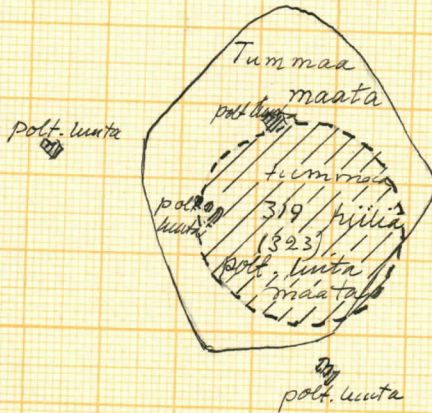 Tummaa
maata
polt. luuta
polt. luuta
tummaa
polt.
luuta
319 hiiliä
(323)
polt. luita
maata
polt. luuta